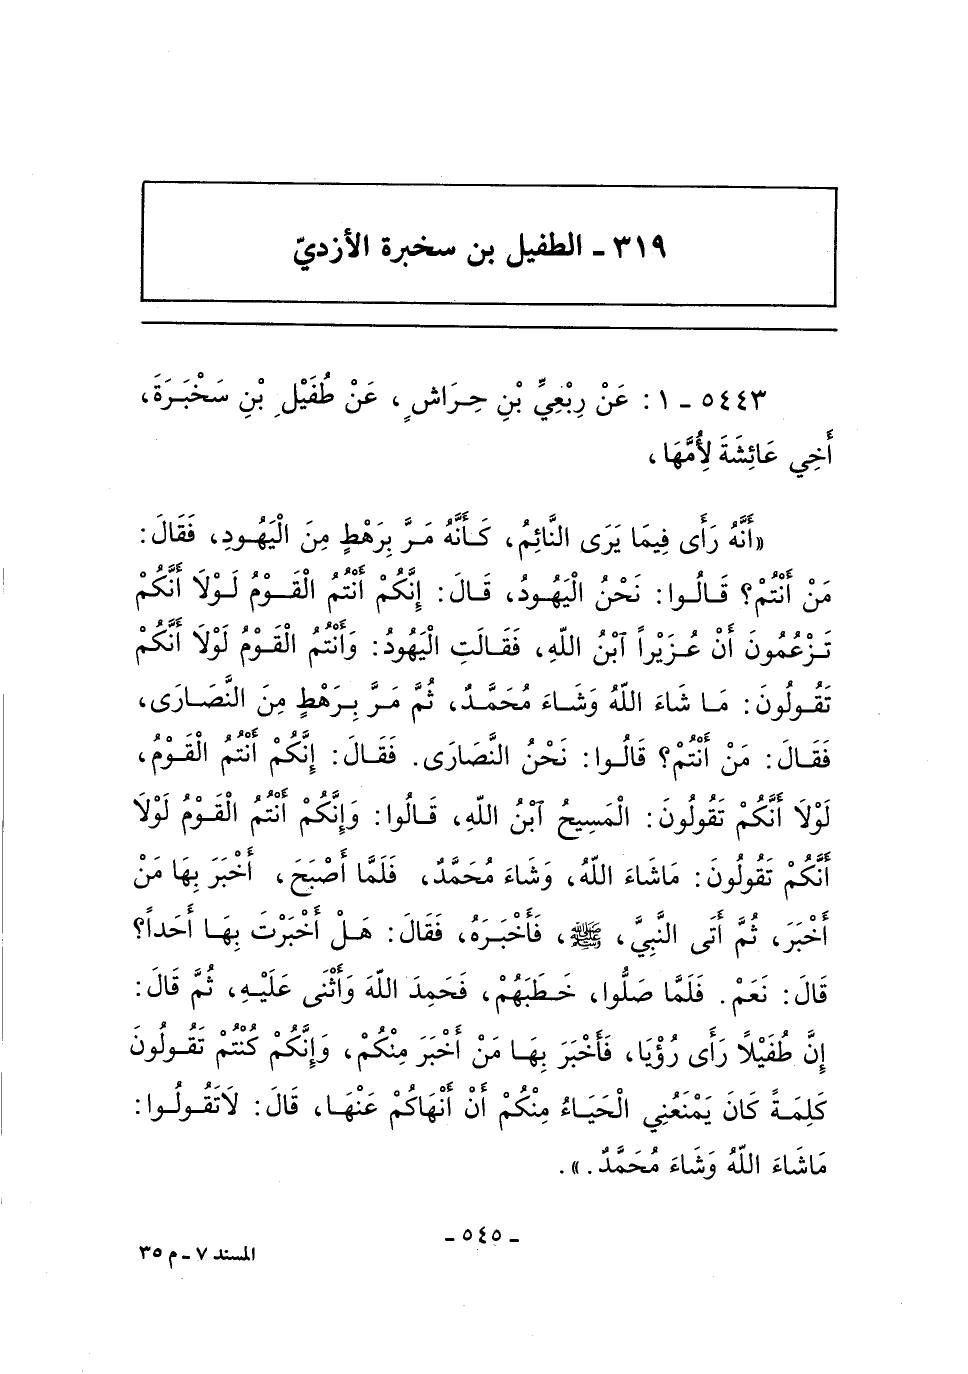 ٣١٩ - الطفيل بن سخبرة الأزديّ
٥٤٤٣ - ١ : عَنْ رِبْعِيِّ بْنِ حِرَاشٍ، عَنْ طُفَيْلِ بْنِ سَخْبَرَةَ،
أَخِي عَائِشَةَ لِأُمِّهَا،
«أَنَّهُ رَأَى فِيمَا يَرَى النَّائِمُ، كَأَنَّهُ مَرَّ بِرَهْطٍ مِنَ الْيَهُودِ، فَقَالَ:
مَنْ أَنْتُمْ؟ قَالُوا: نَحْنُ الْيَهُودُ، قَالَ: إِنَّكُمْ أَنْتُمُ الْقَوْمُ لَوْلَا أَنَّكُمْ
تَزْعُمُونَ أَنْ عُزَيْراً ٱبْنُ اللّهِ، فَقَالَتِ الْيَهُودُ: وَأَنْتُمُ الْقَوْمُ لَوْلَا أَنَّكُمْ
تَقُولُونَ: مَا شَاءَ اللّهُ وَشَاءَ مُحَمَّدٌ، ثُمَّ مَرَّ بِرَهْطٍ مِنَ النَّصَارَى،
فَقَالَ: مَنْ أَنْتُمْ؟ قَالُوا: نَحْنُ النَّصَارَى. فَقَالَ: إِنَّكُمْ أَنْتُمُ الْقَوْمُ،
لَوْلَا أَنَّكُمْ تَقُولُونَ: الْمَسِيحُ ٱبْنُ اللّهِ، قَالُوا: وَإِنَّكُمْ أَنْتُمُ الْقَوْمُ لَوْلَا
أَنَّكُمْ تَقُولُونَ: مَاشَاءَ اللّهُ، وَشَاءَ مُحَمَّدٌ، فَلَمَّا أَصْبَحَ، أَخْبَرَ بِهَا مَنْ
أَخْبَرَ، ثُمَّ أَتَى النَّبِيَّ، ﷺ، فَأَخْبَرَهُ، فَقَالَ: هَلْ أَخْبَرْتَ بِهَا أَحَداً؟
قَالَ: نَعَمْ. فَلَمَّا صَلُّوا، خَطَبَهُمْ، فَحَمِدَ اللّهَ وَأَثْنَى عَلَيْهِ، ثُمَّ قَالَ:
إِنَّ طُفَيْلًا رَأَى رُؤْيَا، فَأَخْبَرَ بِهَا مَنْ أَخْبَرَ مِنْكُمْ، وَإِنَّكُمْ كُنْتُمْ تَقُولُونَ
كَلِمَةً كَانَ يَمْنَعُنِي الْحَيَاءُ مِنْكُمْ أَنْ أَنْهَاكُمْ عَنْهَا، قَالَ: لَاتَقُولُوا:
مَاشَاءَ اللّهُ وَشَاءَ مُحَمَّدٌ.».
- ٥٤٥ -
المسند ٧ - م ٣٥